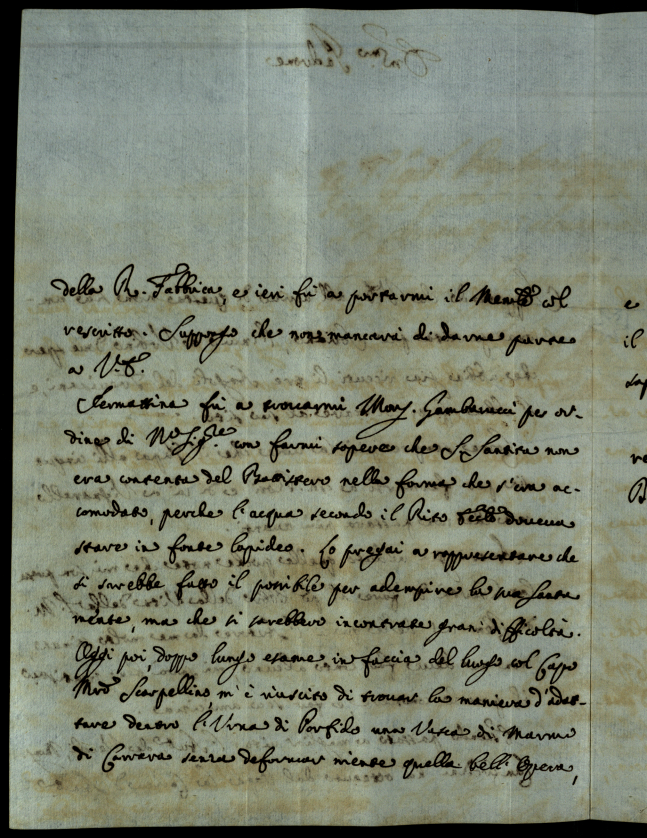 della R. Fabbrica, e ieri fù a portarmi il Mem.le col
rescritto. Suppongo che non mancarà di darne parte
a V.E.
Iermattina fù a trovarmi Mons. Gambarucci per or-
dine di N.ro Sig.re con farmi sapere che S. Santità non
era contenta del Battistero nella forma che s'era ac-
comodato, perche l'acqua secondo il Rito doveva
stare in fonte lapideo. Lo pregai a rappresentare che
si sarebbe fatto il possibile per adempire la sua santa
mente, ma che si sarebbero incontrate gran difficoltà.
Oggi poi, doppo lungo esame in faccia del luogo col Capo
Mro Scarpellino, m'è riuscito di trovar la maniera d'adat-
tare dentro l'Urna di Porfido una Vasca di Marmo
di Carrara senza deformar niente quella bell'Opera,
e
il
re